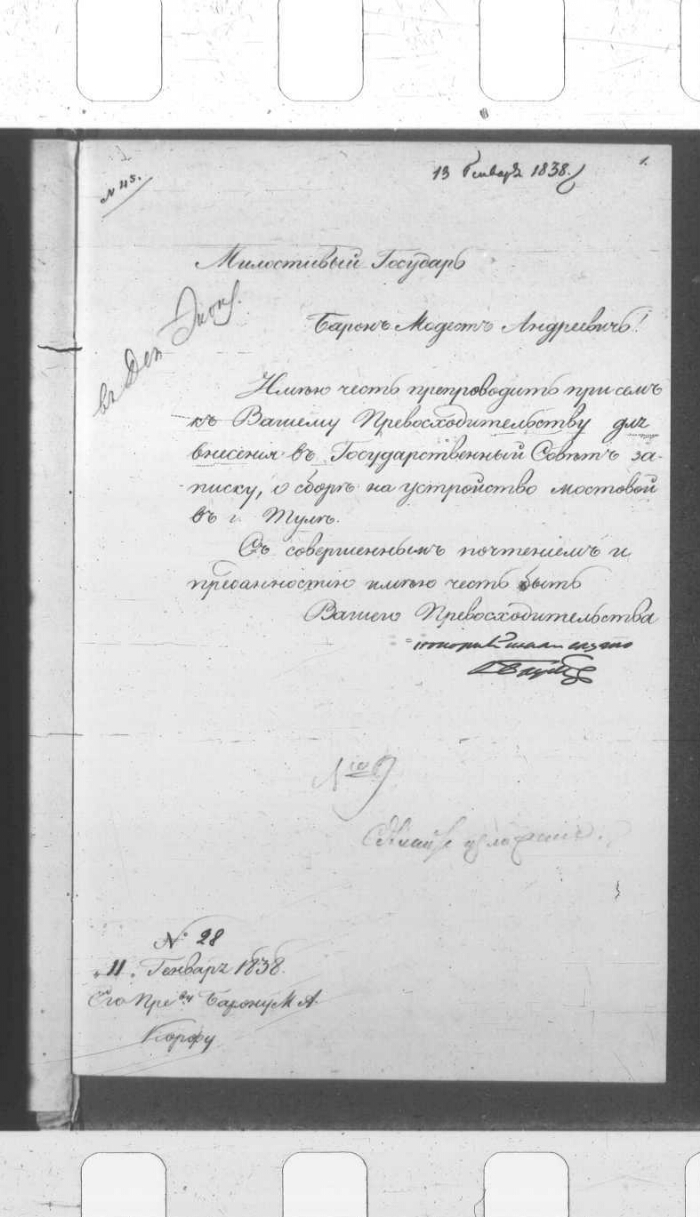 № 45.
13 Генваря 1838.
1.
Милостивый Государь
въ Деп. Экон.
Баронъ Модестъ Андреевичъ!
Имѣю честь препроводить при семъ
къ Вашему Превосходительству для
внесенія въ Государственный Совѣтъ за-
писку, о сборѣ на устройство мостовой
въ г. Тулѣ.
Съ совершеннымъ почтеніемъ и
преданностію имѣю честь быть
Вашего Превосходительства
№ 28
„11„ Генваря 1838.
Его Пре-ву Барону М. А.
Корфу